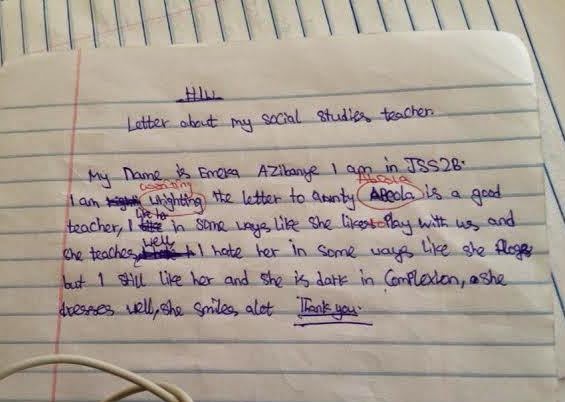 Letter about my social studies teacher.
My name is Emeka Azibanye I am in JSS2B.
writing Abeola
I am wrighting the letter to aunty Abeola is a good
like to
teacher, I in some ways like she likes to Play with us and
well
she teaches I hate her in some ways like she floges
but I still like her and she is dark in Complexion, she
dresses well, she smiles alot Thank you.